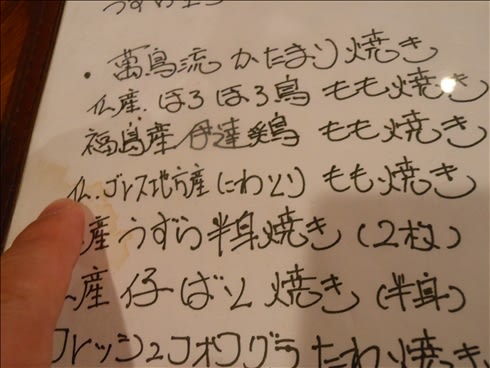 ・萬鳥流 かたまり焼き
仏産.ほろほろ鳥 もも焼き
福島産 伊達鶏 もも焼き
仏.ゴレス地方産 にわとり もも焼き
産 うずら半身焼き (2枚)
産 仔ばと 焼き (半身)
フレッシュフォワグラ